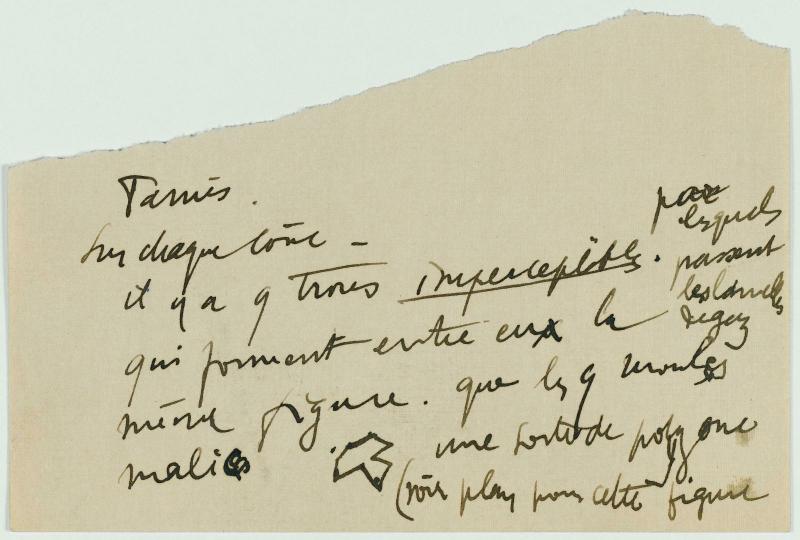 Tamis.
Sur chaque cône –
il y a 9 trous imperceptibles. par
lesquels
passent
les lamelles
de gaz
qui forment entre eux la
même figure. que les 9 moules
malics une sorte de polygone
(voir plan pour cette figure